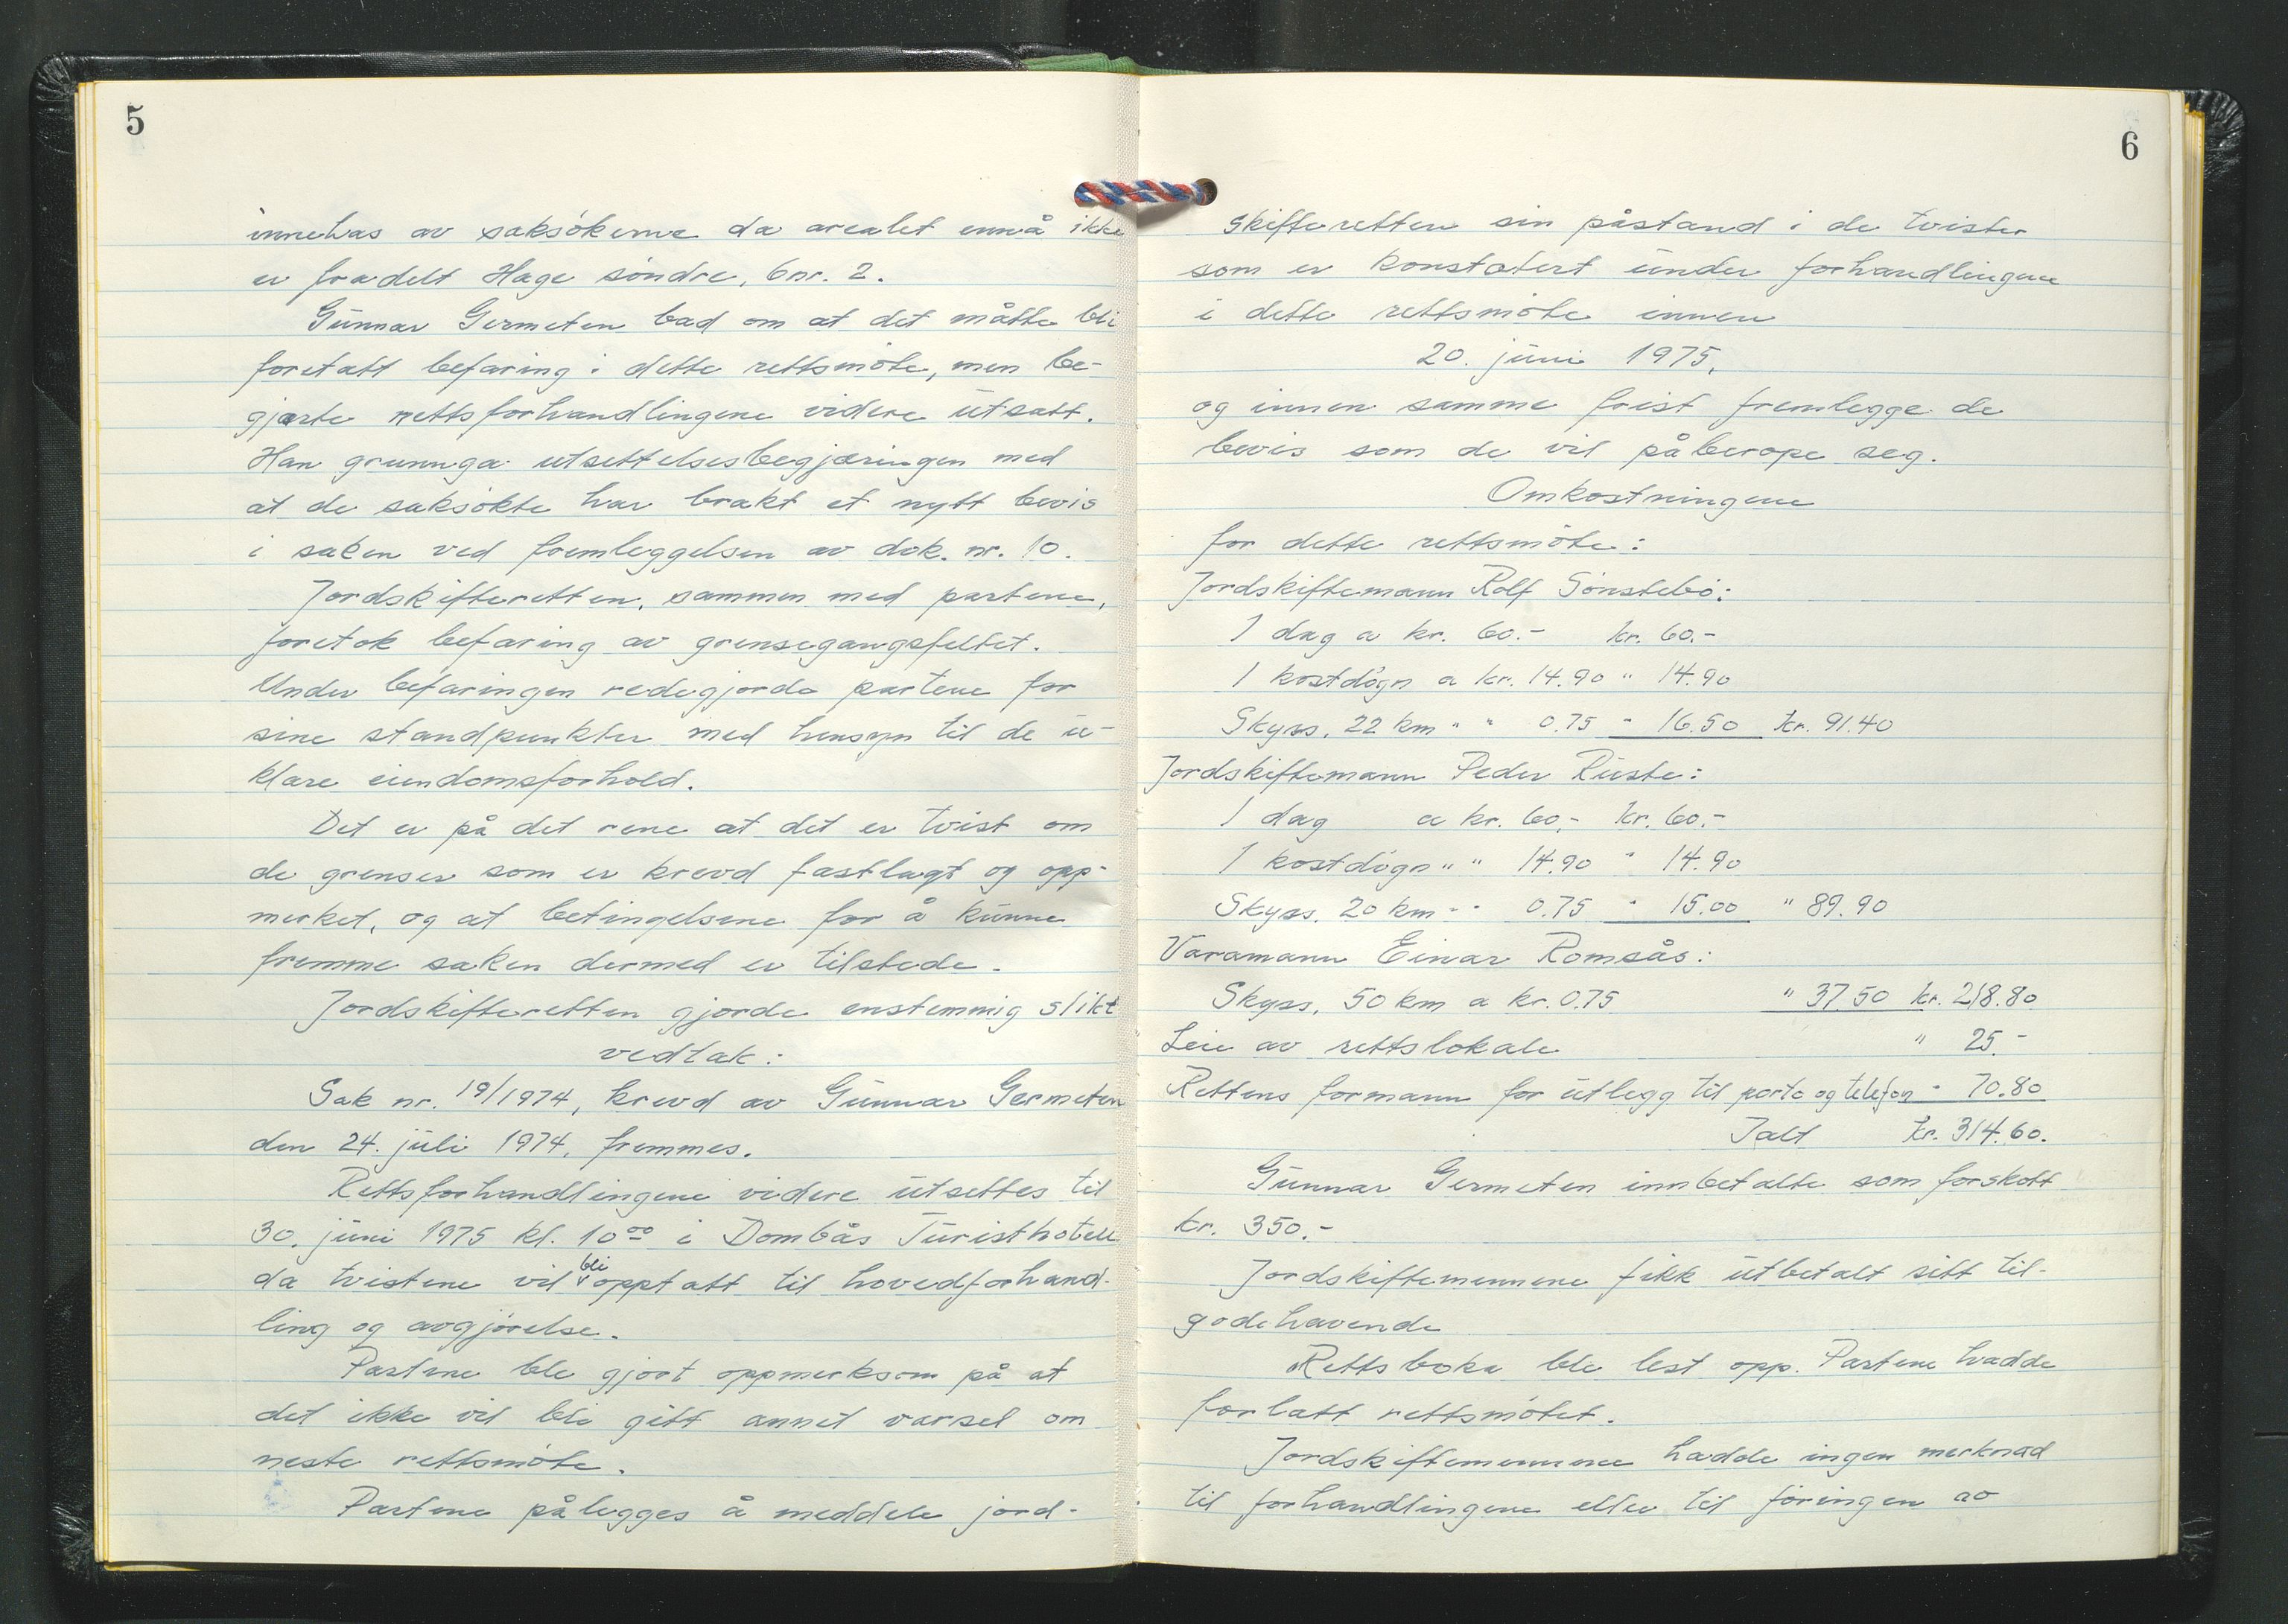 5
innehas av saksökerne da arealet ennå ikke
er fradelt Hage söndre, bnr. 2.
Gunnar Germeten bad om at det måtte bli
foretatt befaring i dette rettsmöte, men be-
gjærte rettsforhandlingene videre utsatt.
Han grunnga utsettelsesbegjæringen med
at de saksökte har brakt et nytt bevis
i saken ved fremleggelsen av dok. nr. 10.
Jordskifteretten, sammen med partene,
foretok befaring av grensegangsfeltet.
Under befaringen redegjorde partene for
sine standpunkter med hensyn til de u-
klare eiendomsforhold.
Det er på det rene at det er tvist om
de grenser som er krevd fastlagt og opp-
merket, og at betingelsene for å kunne
fremme saken dermed er tilstede.
Jordskifteretten gjorde enstemmig slikt
vedtak:
Sak nr. 19/1974, krevd av Gunnar Germeten
den 24. juli 1974, fremmes.
Rettsforhandlingene videre utsettes til
30. juni 1975 kl. 10⁰⁰ i Dombås Turisthotell
da tvistene vil bli opptatt til hovedforhand-
ling og avgjörelse.
Partene ble gjort oppmerksom på at
det ikke vil bli gitt annet varsel om
neste rettsmöte.
Partene pålegges å meddele jord-
6
skifteretten sin påstand i de tvister
som er konstatert under forhandlingene
i dette rettsmöte innen
20. juni 1975,
og innen samme frist fremlegge de
bevis som de vil påberope seg.
Omkostningene
for dette rettsmöte:
Jordskiftemann Rolf Sönstebö:
1 dag a kr. 60.- kr. 60.-
1 kostdögn a kr. 14.90 " 14.90
Skyss, 22 km " " 0.75 " 16.50 kr. 91.40
Jordskiftemann Peder Ruste:
1 dag a kr. 60,- kr. 60.-
1 kostdögn " " 14.90 " 14.90
Skyss, 20 km " " 0.75 " 15.00 " 89.90
Varamann Einar Romsås:
Skyss, 50 km a kr. 0.75 " 37.50 kr. 218.80
Leie av rettslokale " 25.-
Rettens formann for utlegg til porto og telefon " 70.80
Ialt kr. 314.60.
Gunnar Germeten innbetalte som forskott
kr. 350.-
Jordskiftemennene fikk utbetalt sitt til-
godehavende
Rettsboka ble lest opp. Partene hadde
forlatt rettsmötet.
Jordskiftemennene hadde ingen merknad
til forhandlingene eller til föringen av